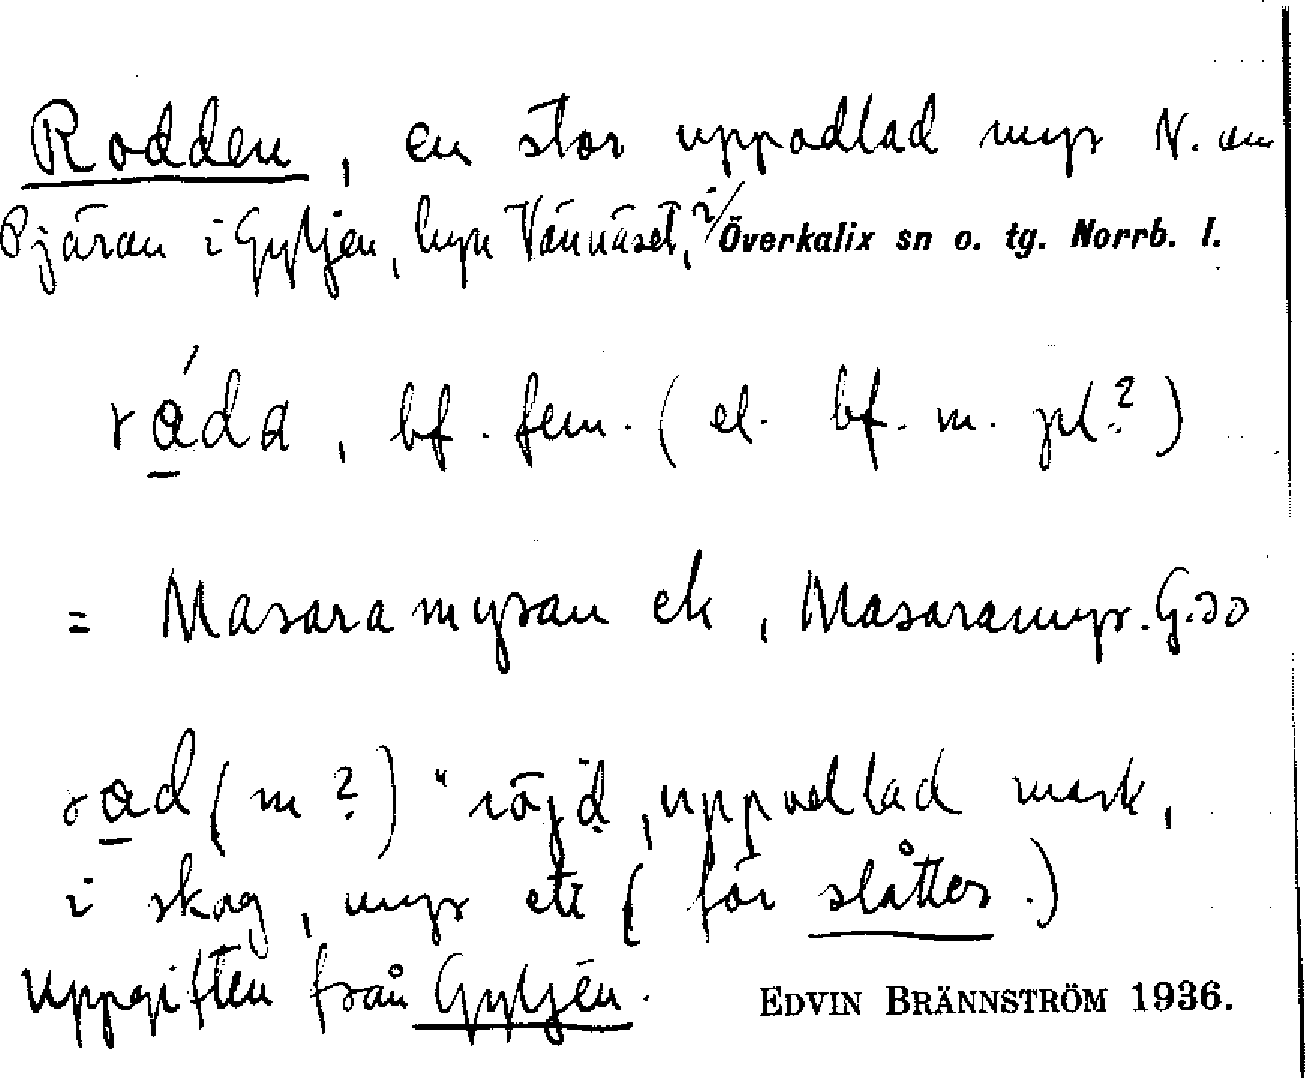 Rodden, en stor uppodlad myr N. om
Pjäran i Gyljen, byn Vännäset, i Överkalix sn o. tg. Norrb. l.
ráda, bf. fem. (el. bf. m. pl.?)
= Masaramyran ek, Masaramyr. G.
rad (m?) "röjd, uppodlad mark,
i skog, myr etc (för slåtter.)
Uppgiften från Gyljén.
EDVIN BRÄNNSTRÖM 1936.